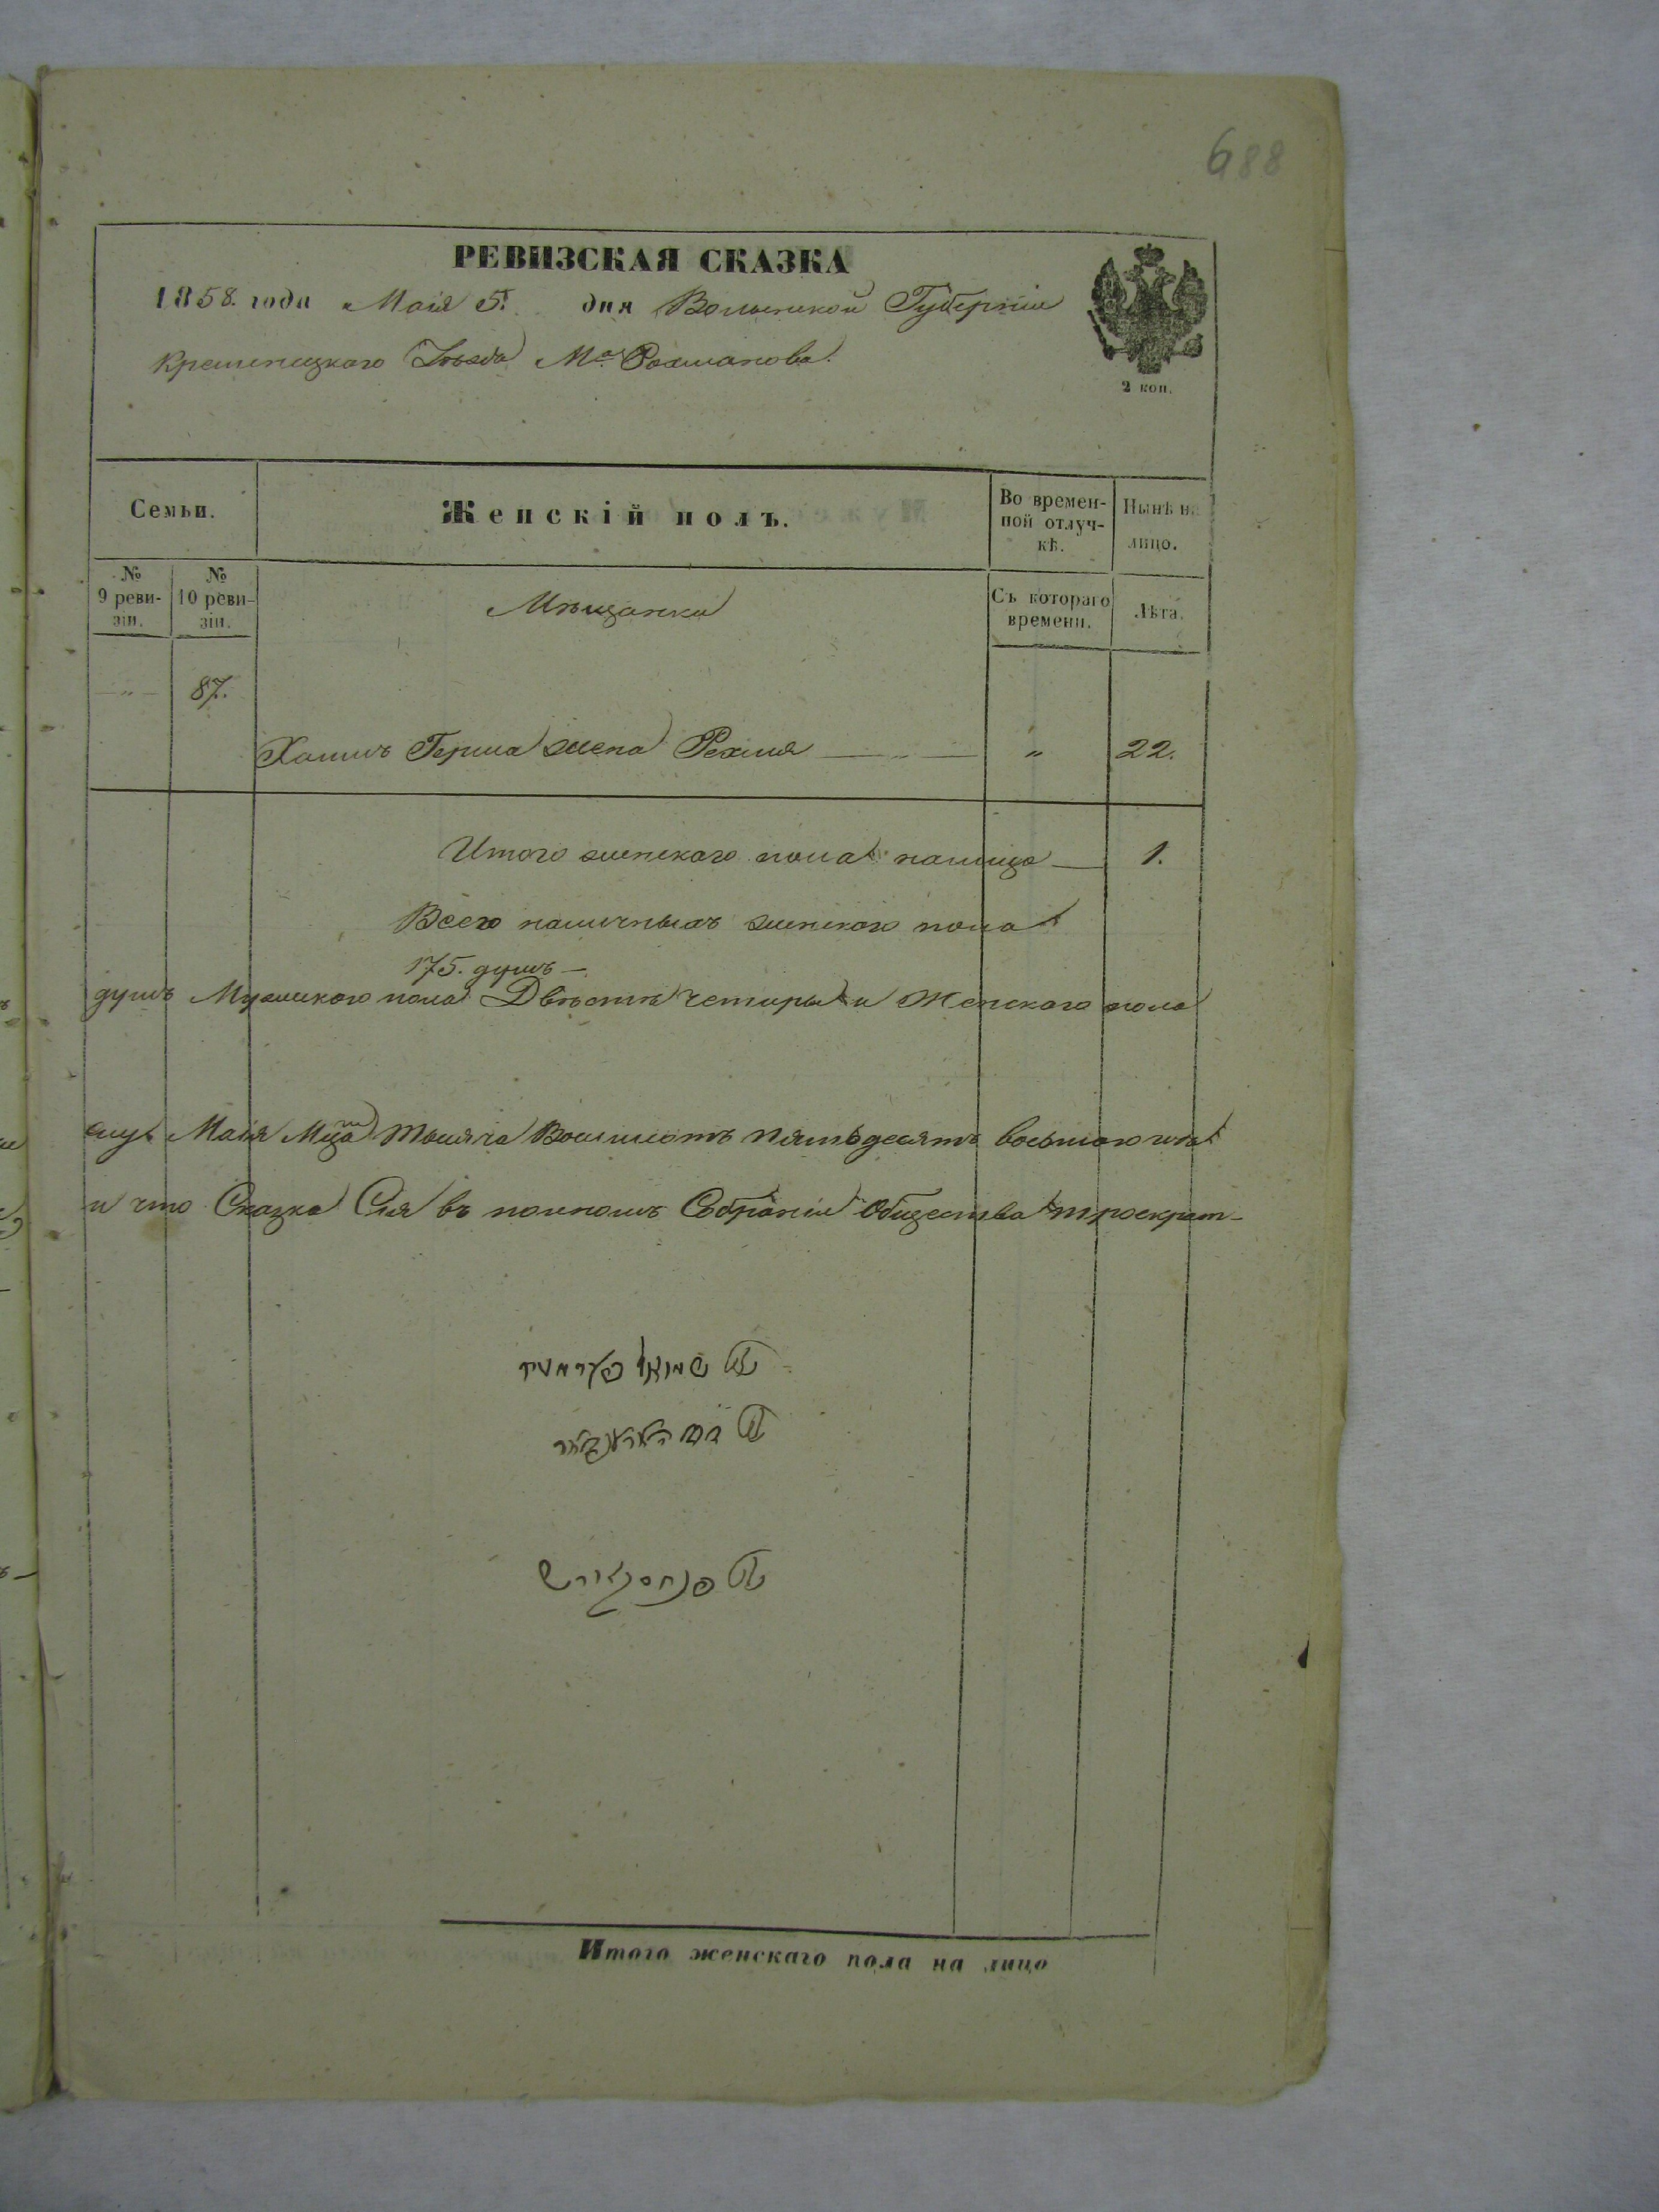 688
РЕВИЗСКАЯ СКАЗКА
1858. года Маія 5. дня Волынской Губерніи
Кременецкаго Уѣзда Мᵃ. Рахманова.
2 коп.
Семьи.
Женскій полъ.
Во времен-
ной отлуч-
кѣ.
Нынѣ на
лицо.
№
9 реви-
зіи.
№
10 реви-
зіи.
Мѣщанки
Съ котораго
времени.
Лѣта.
— " — 87.
Герша жена Рехля — " — " 22.
Итого женскаго пола налицо — 1.
Всего наличныхъ женскаго пола
175. душъ —
душъ Мужескаго пола Двѣстѣ четыры и Женскаго пола
Маія Мца Тысяча Восимсотъ пятьдесятъ восьмаго года
и что Сказка Сія въ полномъ Собраніи Общества троекрат-
שמואל
פנחס
Итого женскаго пола на лицо